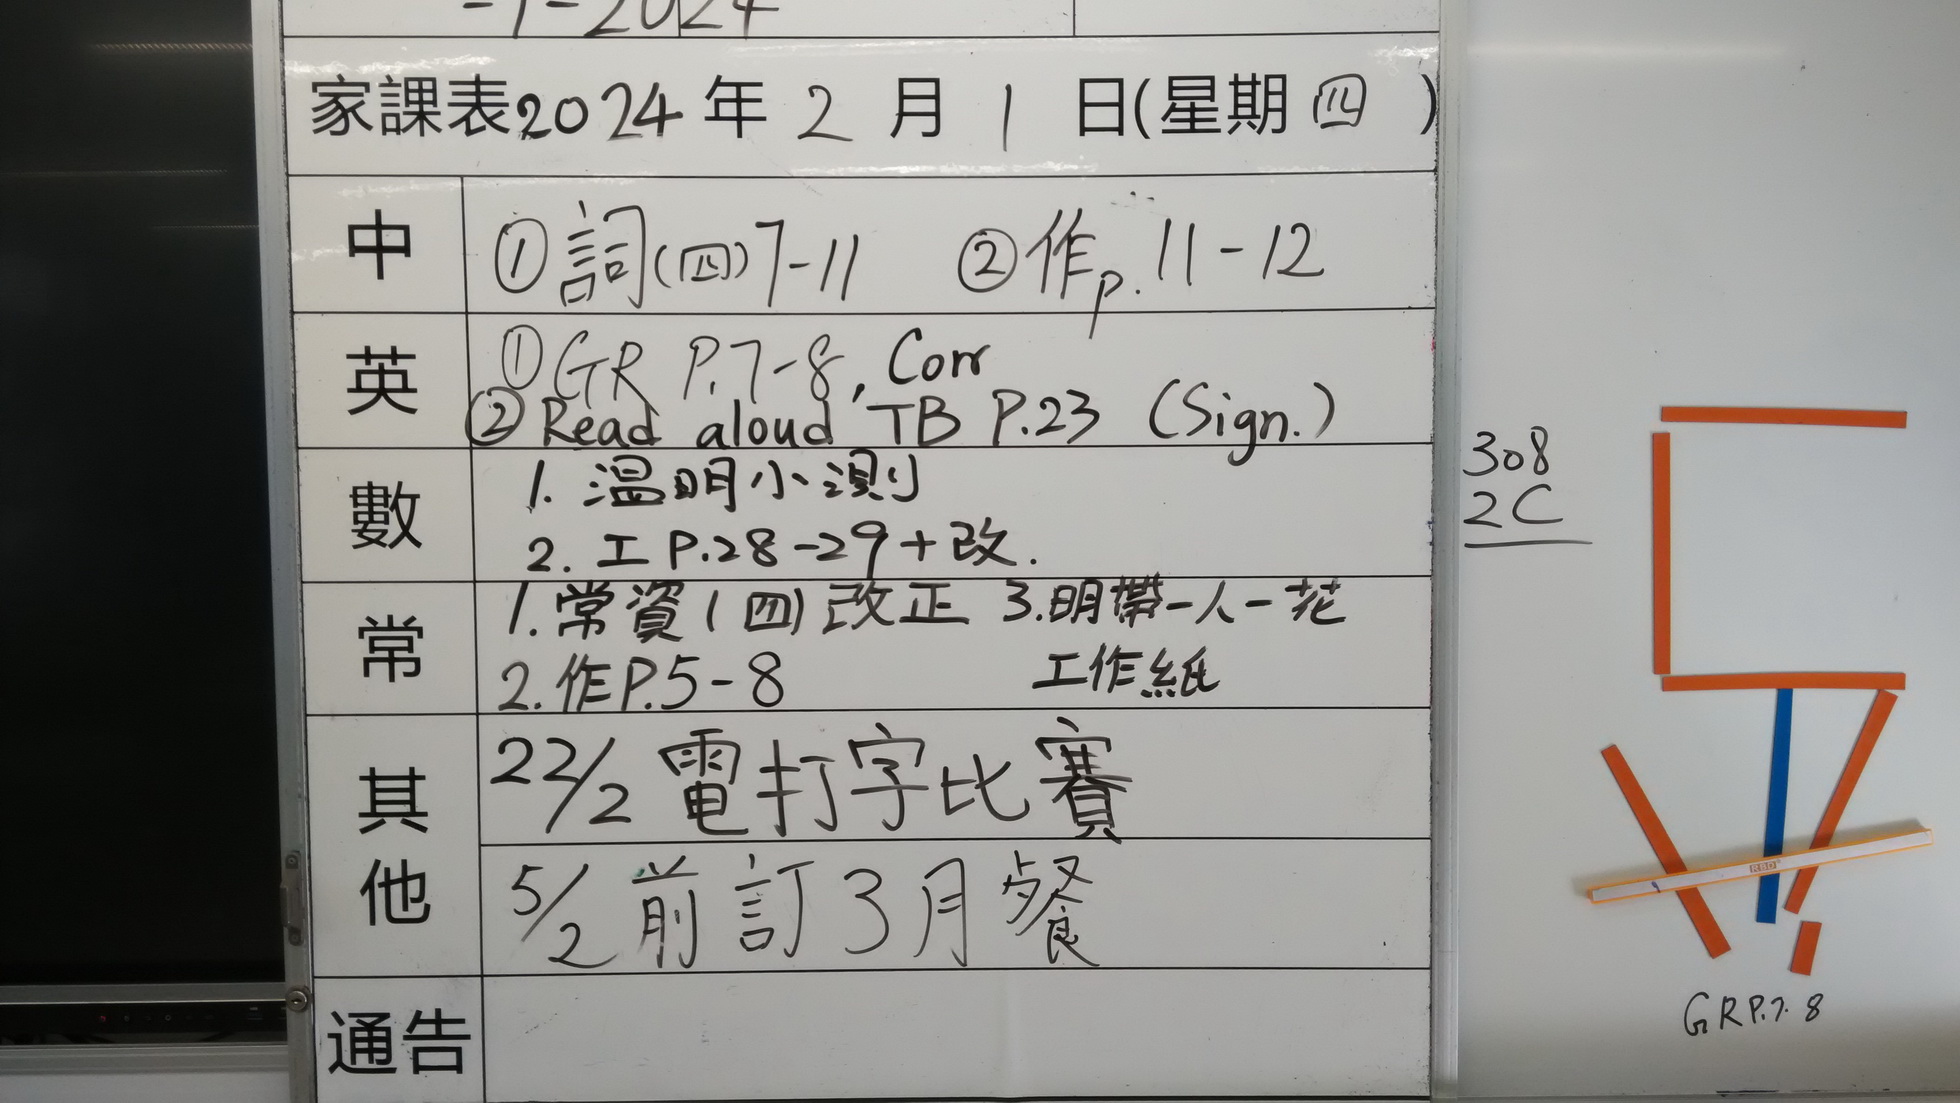 -1-2024
家課表2024年 2 月 1 日(星期四 )
中
①詞(四)7-11 ②作p.11-12
英
①GR P.7-8, Corr
②Read aloud TB P.23 (Sign.)
數
1. 溫明小測
2. 工P.28-29+改.
常
1.常資(四)改正 3.明帶一人一花
2.作P.5-8 工作紙
其他
22/2 電打字比賽
5/2 前訂3月餐
通告
308
2C
GRP.7.8